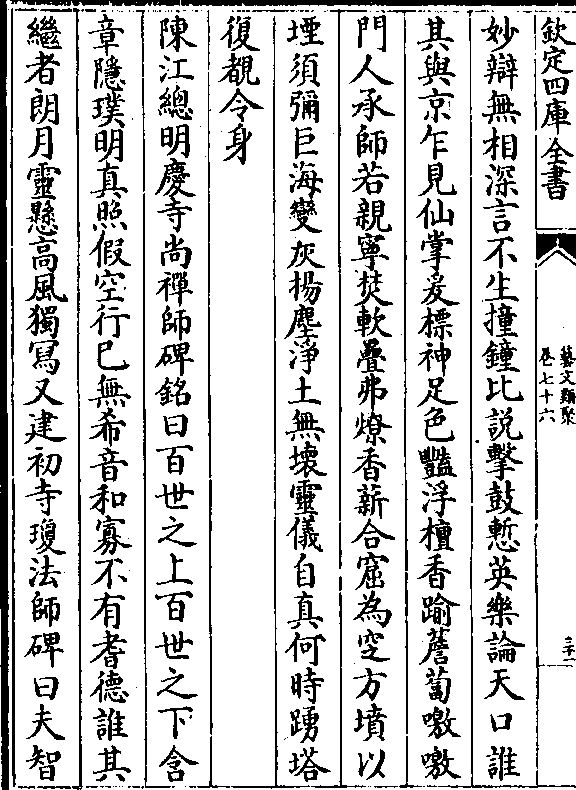 欽定四庫全書
藝文類聚
卷七十六
三十一
妙辯無相深言不生撞鐘比説擊鼓慙英樂論天口誰
其與京乍見仙掌爰標神足色豔浮檀香踰薝蔔噭噭
門人承師若親寧焚軟疊弗燎香薪合窟為空方墳以
堙須彌巨海變灰揚塵淨土無壊靈儀自真何時踴塔
復覩令身
陳江總明慶寺尚禪師碑銘曰百世之上百世之下含
章隱璞明真照假空行已無希音和寡不有耆德誰其
繼者朗月靈懸高風獨寫又建初寺瓊法師碑曰夫智